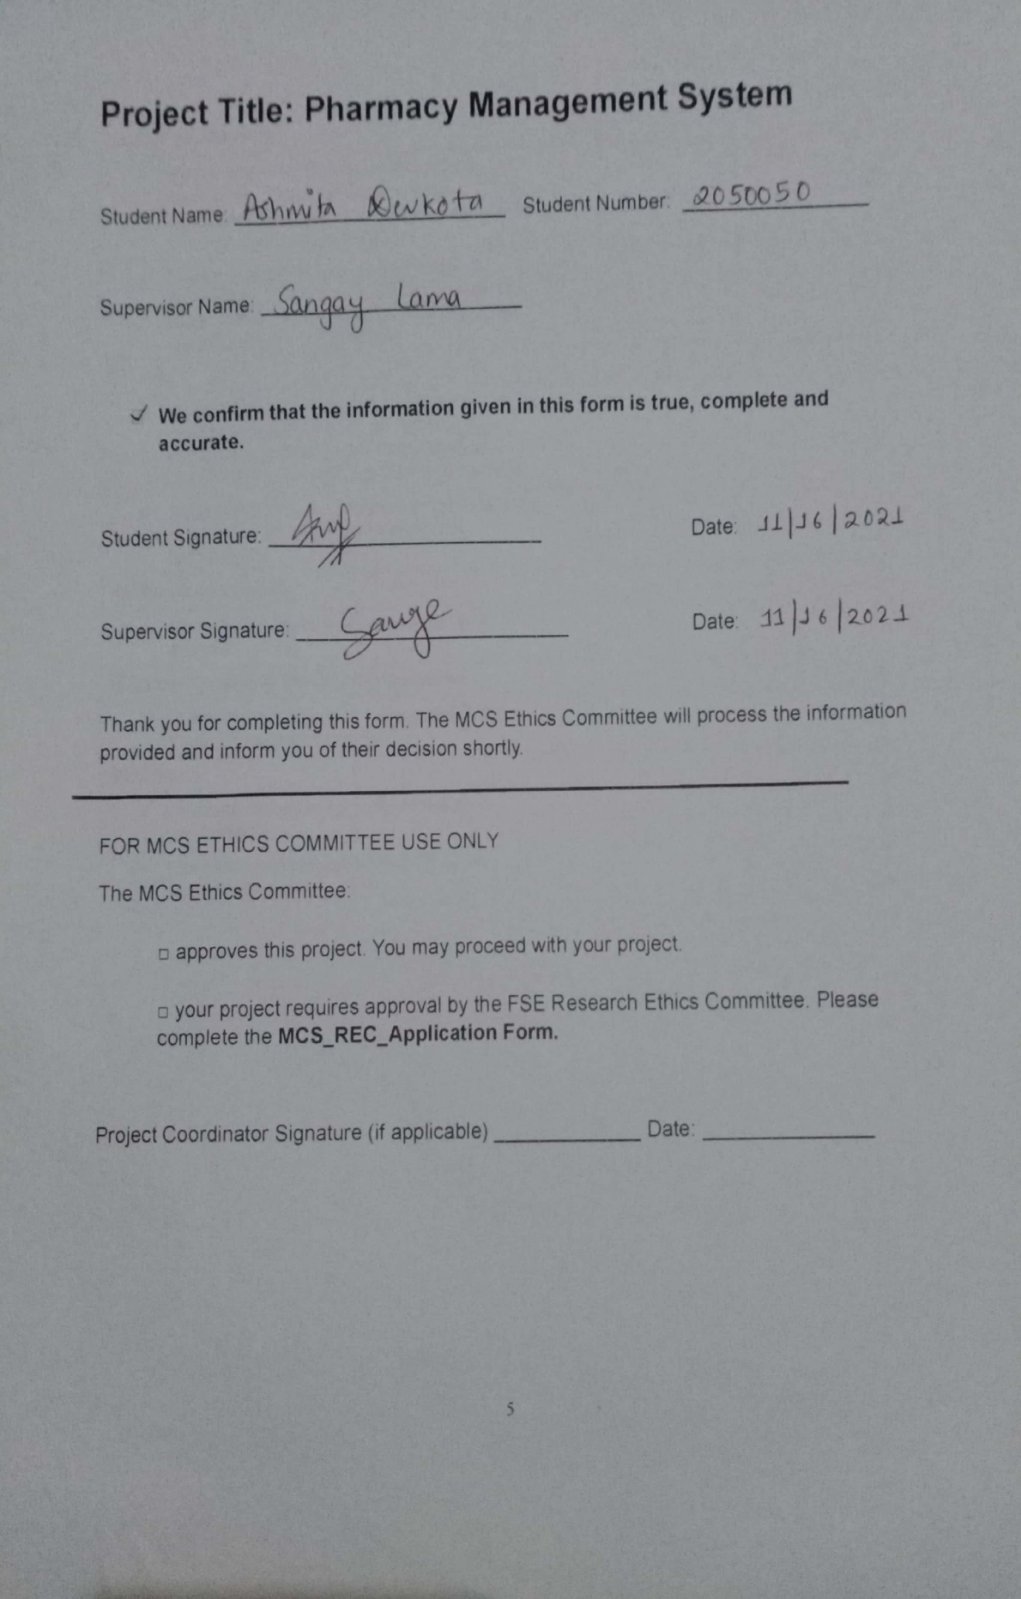 Project Title: Pharmacy Management System
Student Name: Ashmita Devkota Student Number: 2050050
Supervisor Name: Sangay Lama
✓ We confirm that the information given in this form is true, complete and
accurate.
Student Signature: Date: 11|16|2021
Supervisor Signature: Date: 11|16|2021
Thank you for completing this form. The MCS Ethics Committee will process the information
provided and inform you of their decision shortly.
FOR MCS ETHICS COMMITTEE USE ONLY
The MCS Ethics Committee:
□ approves this project. You may proceed with your project.
□ your project requires approval by the FSE Research Ethics Committee. Please
complete the MCS_REC_Application Form.
Project Coordinator Signature (if applicable) ____________ Date: ____________
5